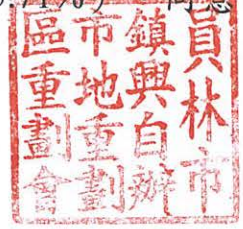 員林市
鎮興自辦
市地重劃
區重劃會